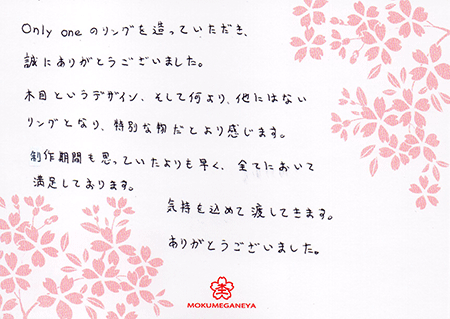 Only one のリングを造っていただき、
誠にありがとうございました。
木目というデザイン、そして何より、他にはない
リングとなり、特別な物だとより感じます。
制作期間も思っていたよりも早く、全てにおいて
満足しております。
気持を込めて渡してきます。
ありがとうございました。
MOKUMEGANEYA